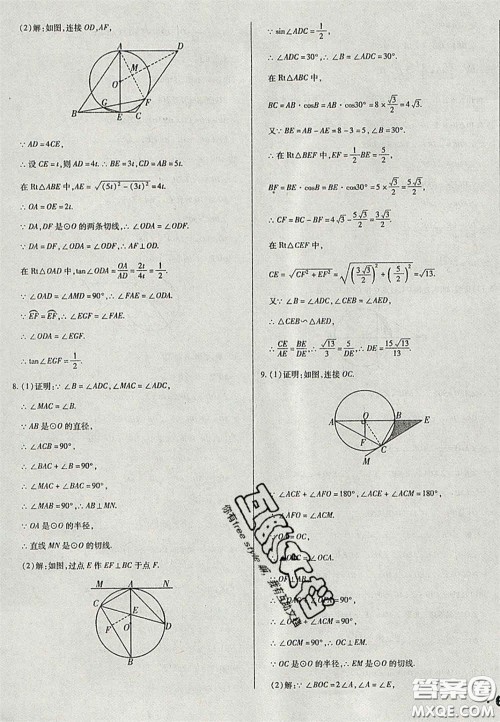 (2)解:如图,连接 OD,AF,
A
D
M
O
G
F
B
E
C
∵ AD=4CE,
∴ 设 CE=t,则 AD=4t. ∴ BE=3t, CD=AB=5t.
在 Rt△ABE 中,AE=√((5t)²-(3t)²)=4t.
∴ OA=OE=2t.
∵ DA,DF 是⊙O 的两条切线,∴ ∠ODA=∠ODF.
∵ DA=DF,∠ODA=∠ODF,∴ AF⊥OD.
在 Rt△OAD 中,tan∠ODA=OA/AD=2t/4t=1/2.
∵ ∠OAD=∠AMD=90°,∴ ∠EAF=∠ODA.
∵ EF=EF,∴ ∠EGF=∠EAF.
∴ ∠ODA=∠EGF.
∴ tan∠EGF=1/2.
8. (1)证明:∵ ∠B=∠ADC,∠MAC=∠ADC,
∴ ∠MAC=∠B.
∵ AB 是⊙O 的直径,
∴ ∠ACB=90°.
∴ ∠BAC+∠B=90°.
∴ ∠MAC+∠BAC=90°.
∴ ∠MAB=90°,∴ AB⊥MN.
∵ OA 是⊙O 的半径,
∴ 直线 MN 是⊙O 的切线.
(2)解:如图,过点 E 作 EF⊥BC 于点 F.
M
A
N
C
E
F
O
D
B
∵ sin∠ADC=1/2,
∴ ∠ADC=30°,∴ ∠B=∠ADC=30°.
在 Rt△ABC 中,
BC=AB·cosB=AB·cos30°=8×√3/2=4√3.
又∵ BE=AB-AE=8-3=5,∠B=30°,
∴ 在 Rt△BEF 中,EF=1/2BE=5/2,
BF=BE·cosB=BE·cos30°=5×√3/2=5√3/2.
∴ CF=BC-BF=4√3-5√3/2=3√3/2.
在 Rt△CEF 中,
CE=√(CF²+EF²)=√((3√3/2)²+(5/2)²)=√13.
又∵ ∠B=∠ADC,∠CEB=∠AED,
∴ △CEB∽△AED.
∴ CE/AE=BE/DE,∴ √13/3=5/DE,∴ DE=15√13/13.
9. (1)证明:如图,连接 OC.
O
B
A
E
F
C
M
∵ ∠ACE+∠AFO=180°,∠ACE+∠ACM=180°,
∴ ∠AFO=∠ACM.
∵ OA=OC,
∴ ∠OAC=∠OCA.
∵ OF⊥AB,
∴ ∠OAC+∠AFO=90°.
∴ ∠OCA+∠ACM=90°.
∴ ∠OCM=90°.
∵ OC 是⊙O 的半径,∴ EM 是⊙O 的切线.
(2)解:∵ ∠BOC=2∠A,∠A=∠E,
互动文档
你有free style 嗯,我有互动文档
答案圈
MXQE.COM